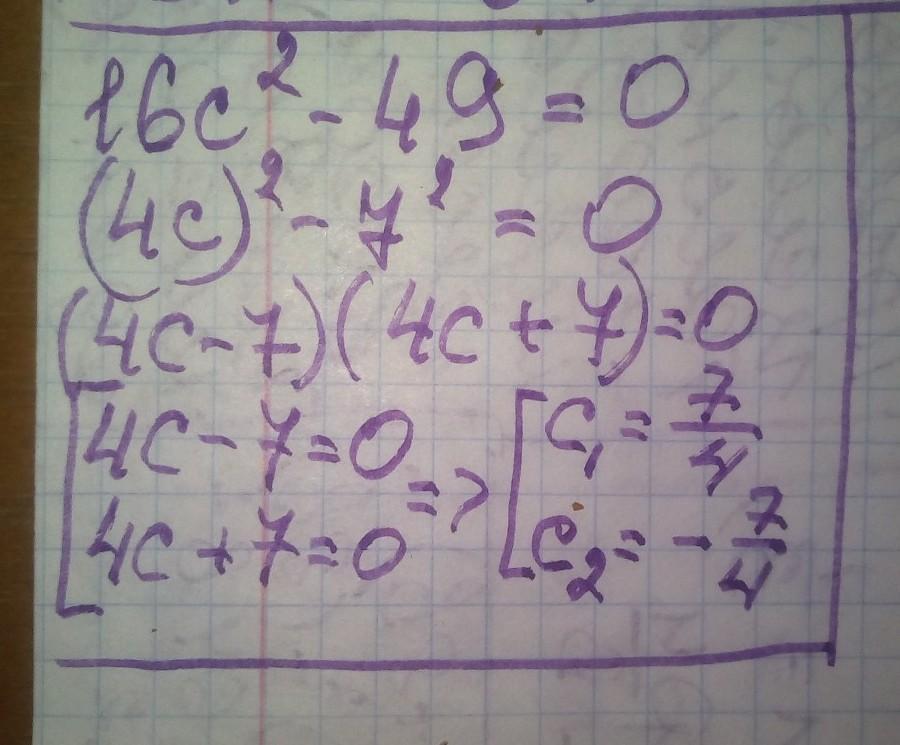 16c² - 49 = 0
(4c)² - 7² = 0
(4c - 7)(4c + 7) = 0
[4c - 7 = 0 => [c₁ = 7/4
[4c + 7 = 0 [c₂ = - 7/4